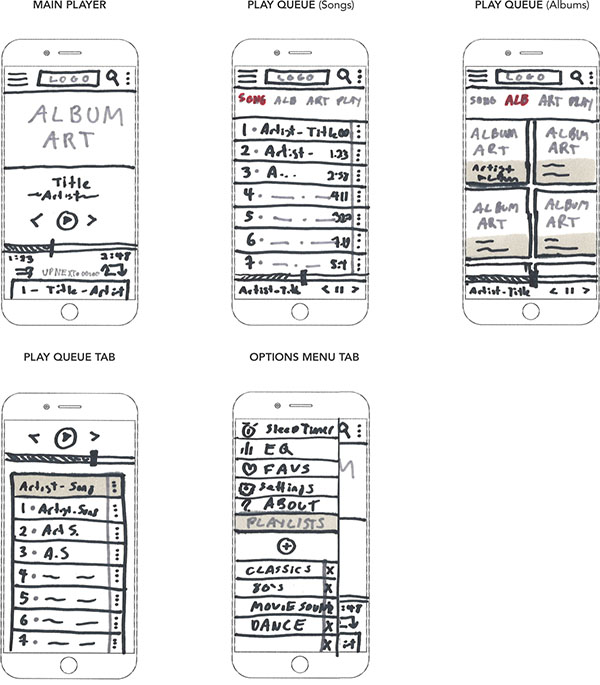 MAIN PLAYER
LOGO
ALBUM
ART
Title
Artist
1:23 2:48
UP NEXT
1 - Title - Artist
PLAY QUEUE (Songs)
LOGO
SONG ALB ART PLAY
1 • Artist - Title
2 • Artist - 1:23
3 • A-.. 2:58
4 • 4:11
5 •
6 •
7 •
Artist-Title
PLAY QUEUE (Albums)
LOGO
SONG ALB ART PLAY
ALBUM
ART
Artist
Album
ALBUM
ART
ALBUM
ART
ALBUM
ART
Artist-Title
PLAY QUEUE TAB
Artist - Song
1 • Artist - Song
2 • Art S.
3 • A.S
4 •
5 •
6 •
7 •
OPTIONS MENU TAB
Sleep Timer
EQ
FAVS
Settings
? ABOUT
PLAYLISTS
CLASSICS X
80's X
MOVIE SOUN X :48
DANCE X
X ist